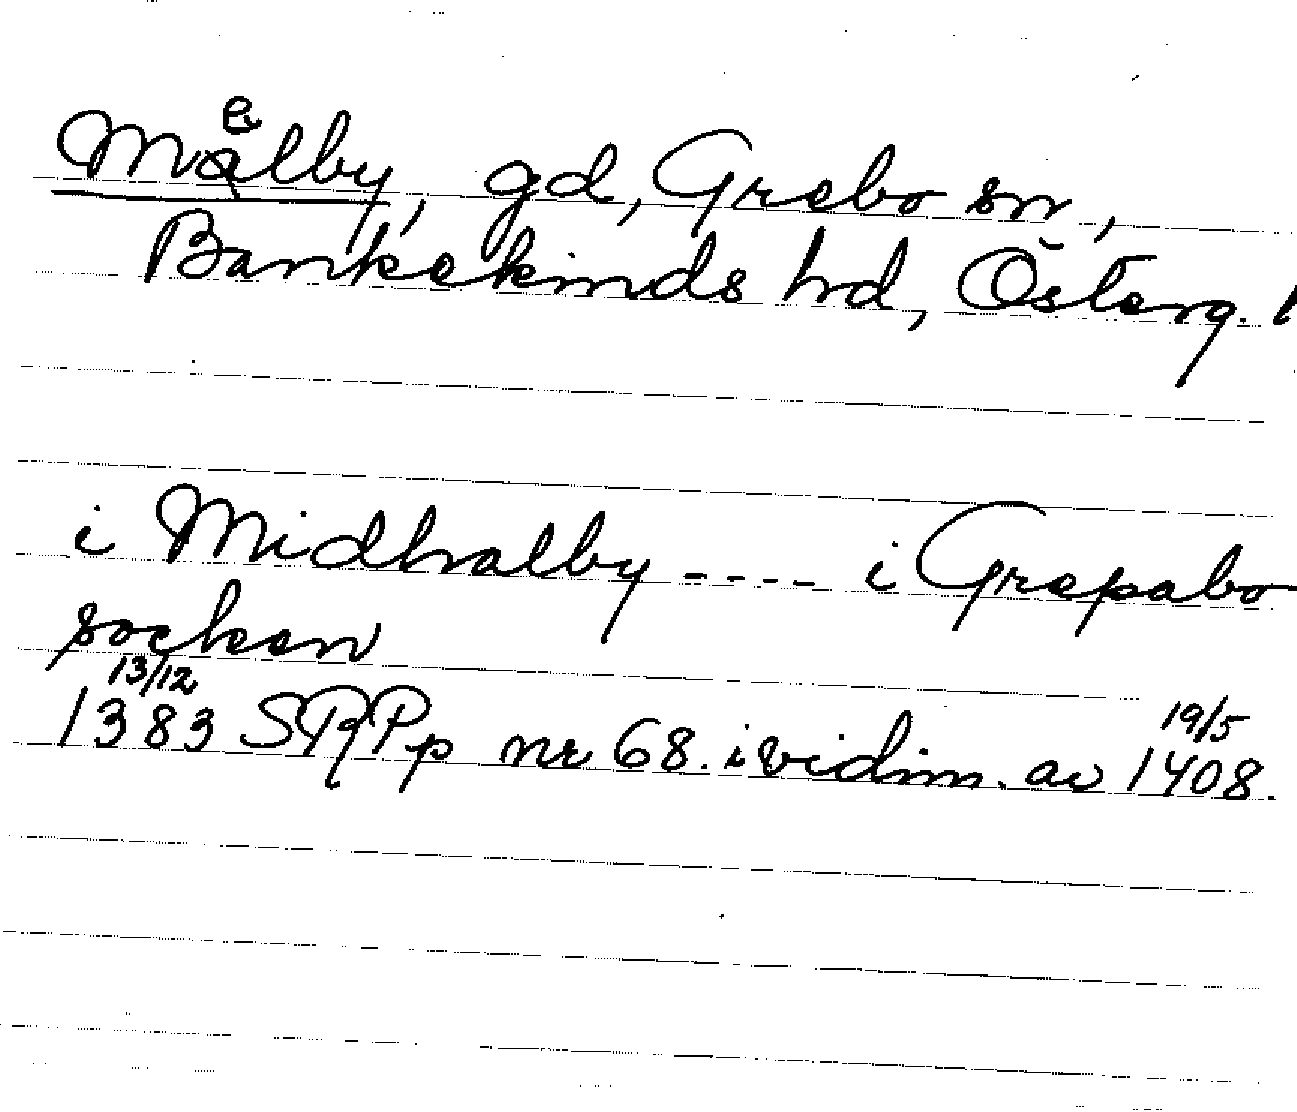 e
Malby, gd, Grebo sn,
Bankekinds hd, Österg. l
i Midhalby ---- i Grepabo
socken
13/12 19/5
1383 SRPp nr 68. i vidim. av 1408.